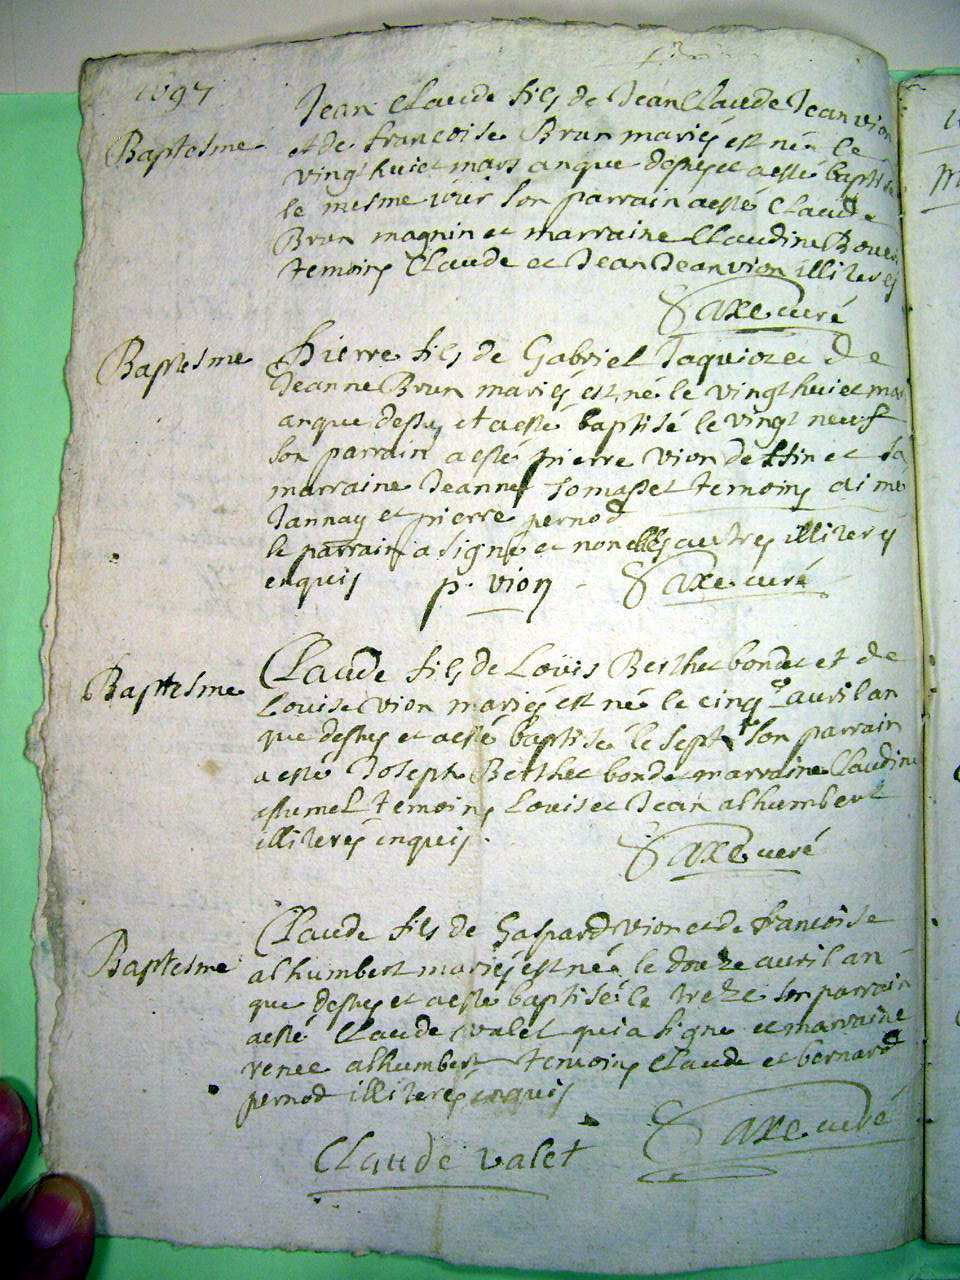 1697
Baptesme
Jean Claude fils de Jean Claude Jeanvion
et de francoise Brun mariés est né le
vingt huict mars an que dessus et a esté baptisé
le mesme iour son parrain a esté Claude
Brun magnin et marraine Claudine
temoins Claude et Jean Jeanvion illiteres
Saxe curé
Baptesme
Pierre fils de Gabriel Jaquioz et de
Jeanne Brun mariés est né le vingt huict mars
an que dessus et a esté baptisé le vingt neuf
son parrain a esté pierre vion dettin et sa
marraine Jeanne Tomasset temoins aimé
Jannay et pierre pernod
le parrain a signé et non les autres illiteres
enquis p. vion Saxe curé
Baptesme
Claude fils de Loüis Berthet bondet et de
Louise vion mariés est né le cinq auril an
que dessus et a esté baptisé le sept son parrain
a esté Joseph Berthet bondet marraine Claudine
temoins Louis et Jean alhumbert
illiteres enquis
Saxe curé
Baptesme
Claude fils de Gaspard vion et de francoise
alhumbert mariés est né le douze auril an
que dessus et a esté baptisé le treze son parrain
a esté Claude valet qui a signé et marraine
renee alhumbert temoins Claude et bernard
pernod illiteres enquis
Claude valet Saxe curé